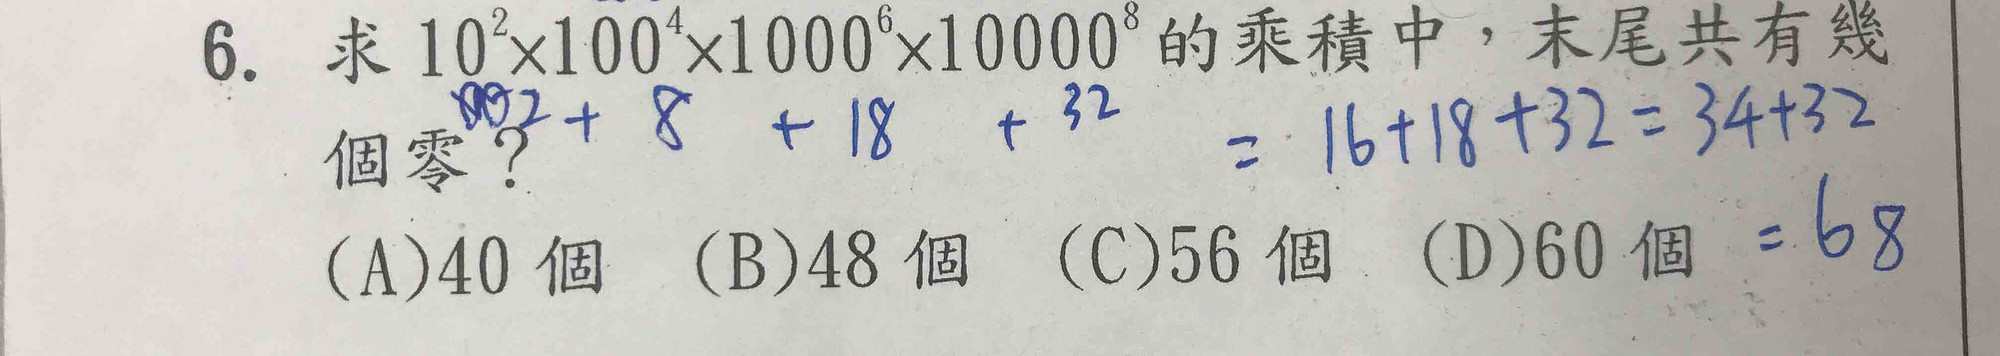 6. 求 10²×100⁴×1000⁶×10000⁸ 的乘積中，末尾共有幾
個零？
2 + 8 + 18 + 32 = 16+18+32=34+32
(A)40 個 (B)48 個 (C)56 個 (D)60 個 =68